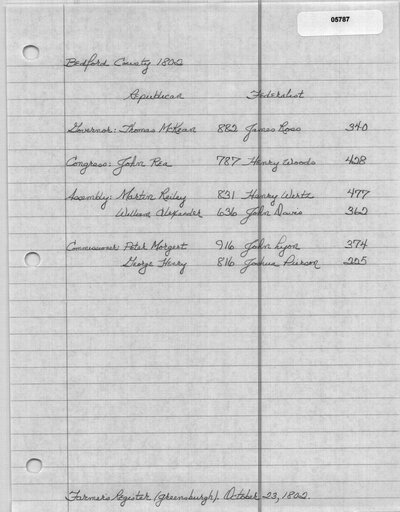 05787
Bedford County 1802
Republican Federalist
Governor: Thomas McKean 882 James Ross 340
Congress: John Rea 787 Henry Woods 428
Assembly: Martin Reiley 831 Henry Wertz 477
William Alexander 636 John Davis 362
Commissioner: Peter Morgert 916 John Lyon 374
George Henry 816 Joshua Pierson 225
Farmers Register (Greensburgh). October 23, 1802.